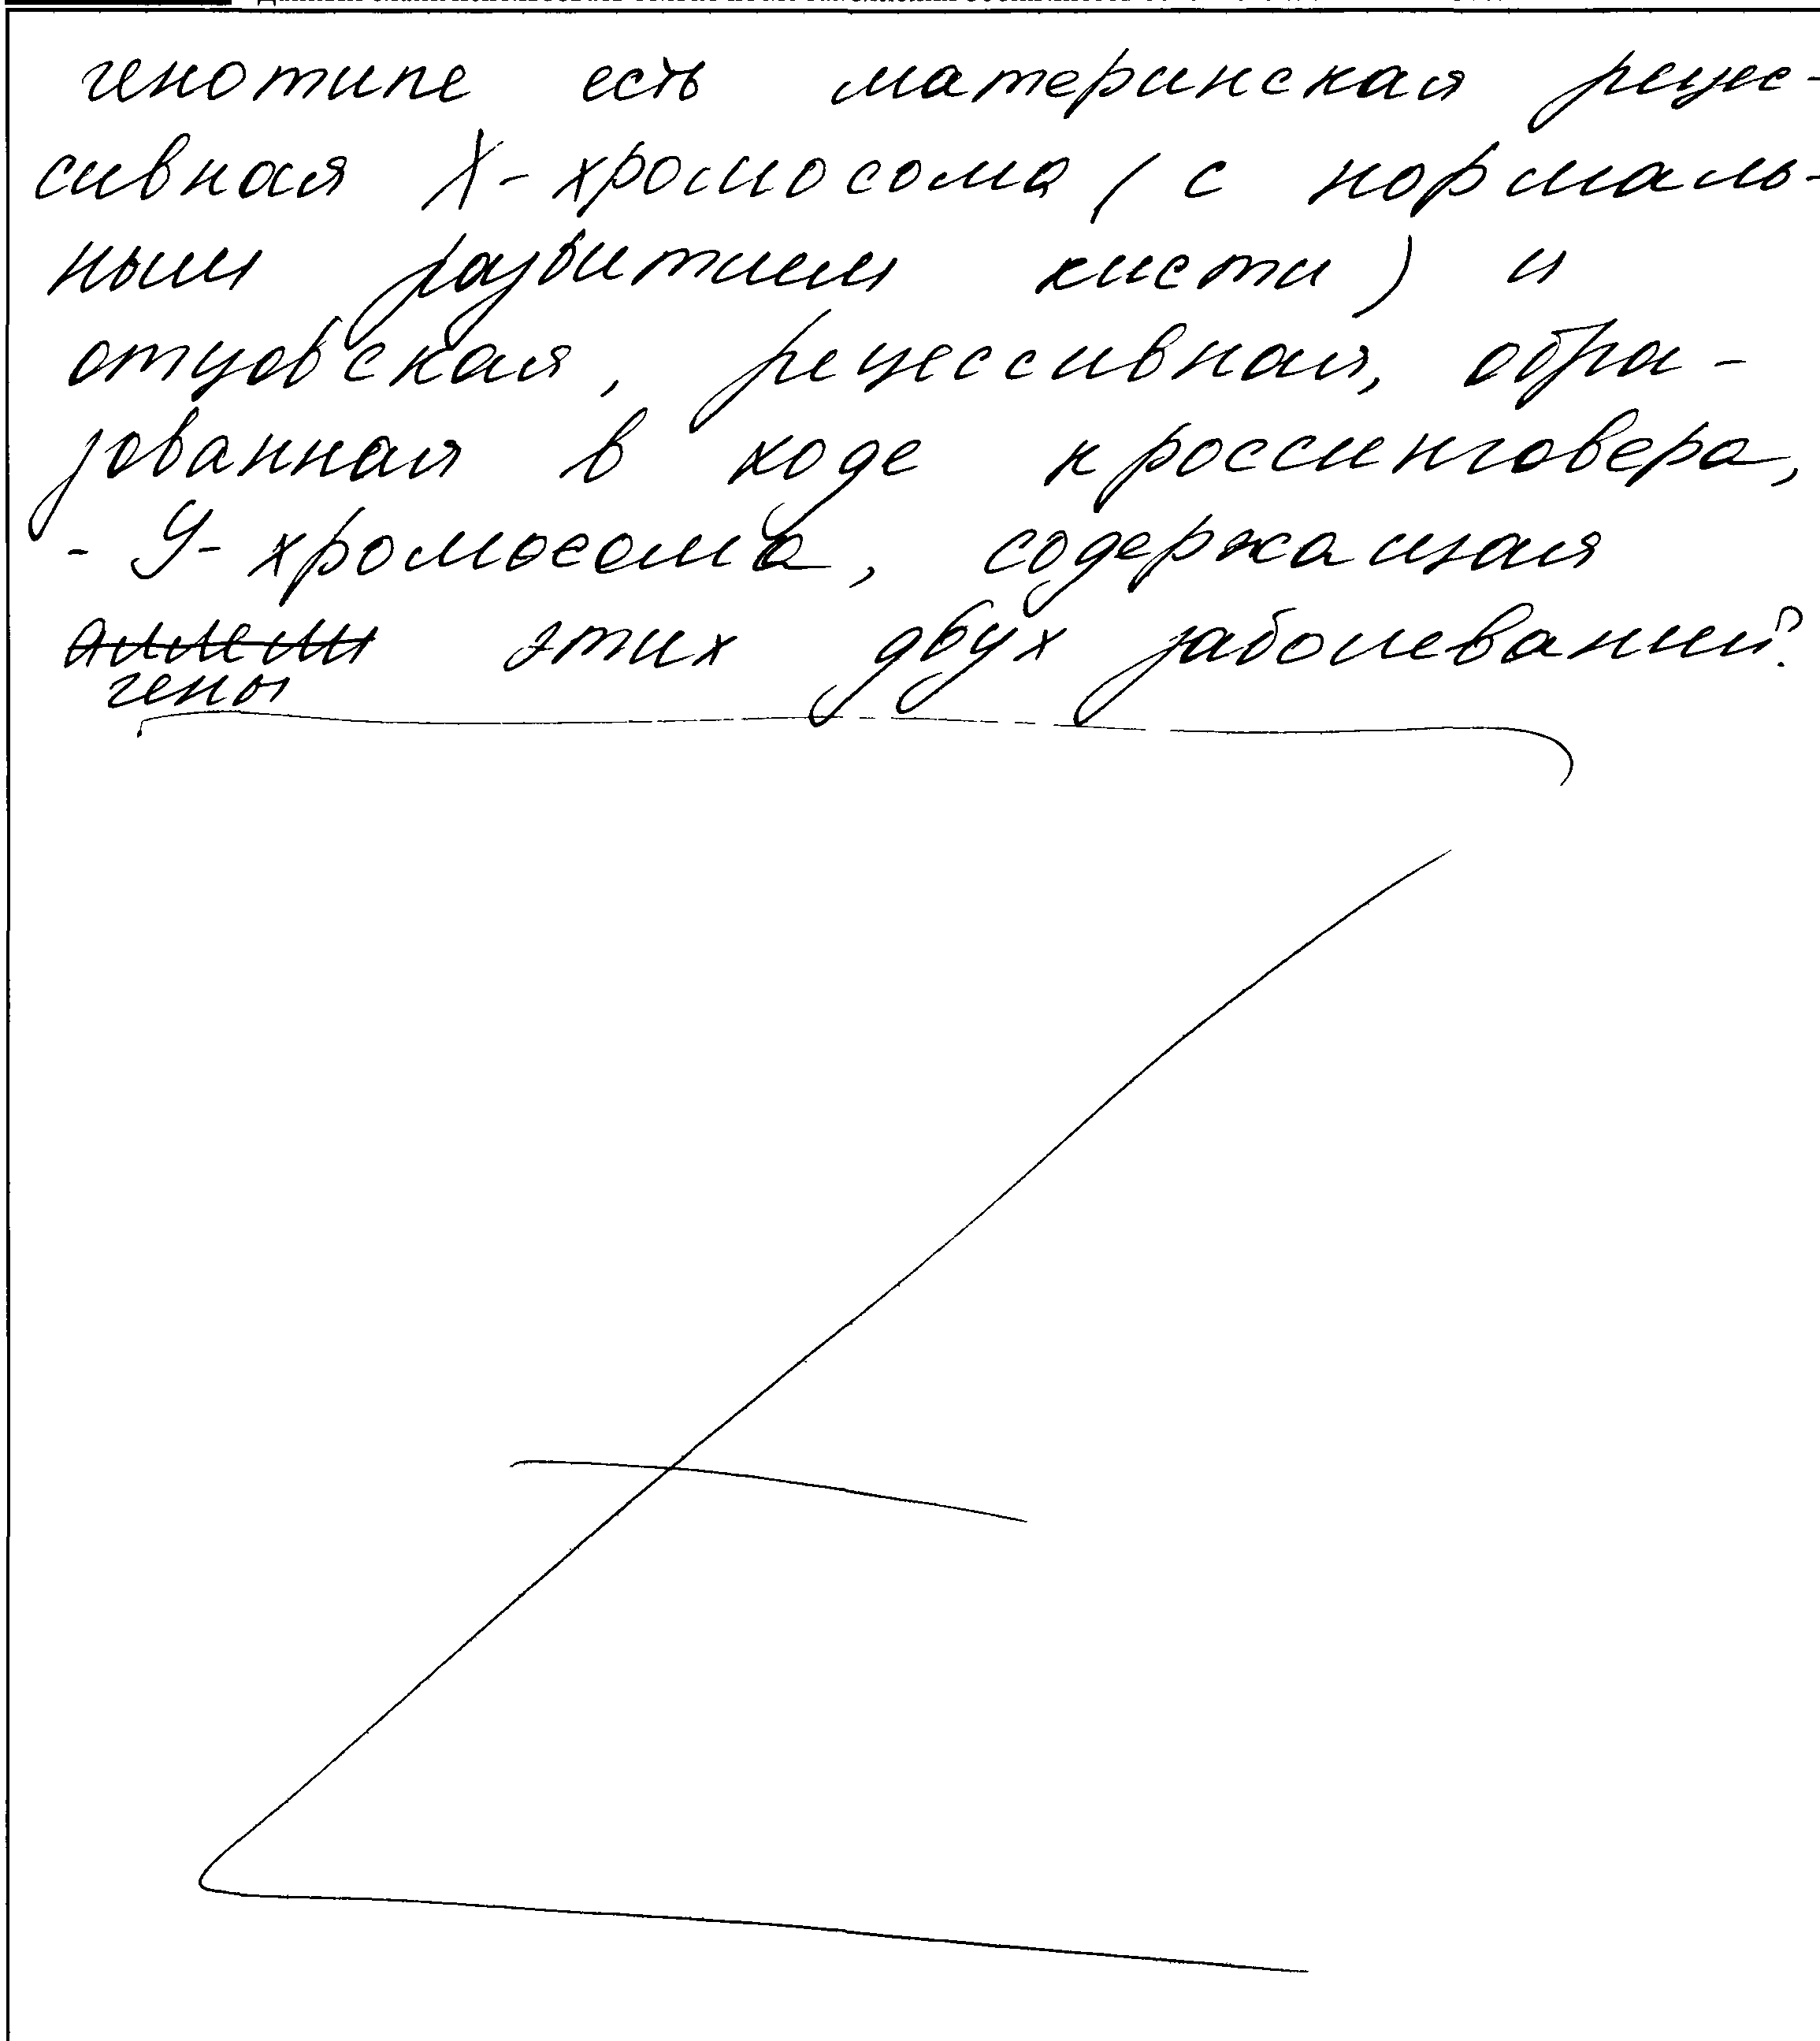 генотипе есть материнская рецес-
сивная X-хромосома (с нормаль-
ным развитием кисти) и
отцовская, рецессивная, обра-
зованная в ходе кроссинговера,
- У-хромосома, содержащая
аллели этих двух заболеваний?
гены